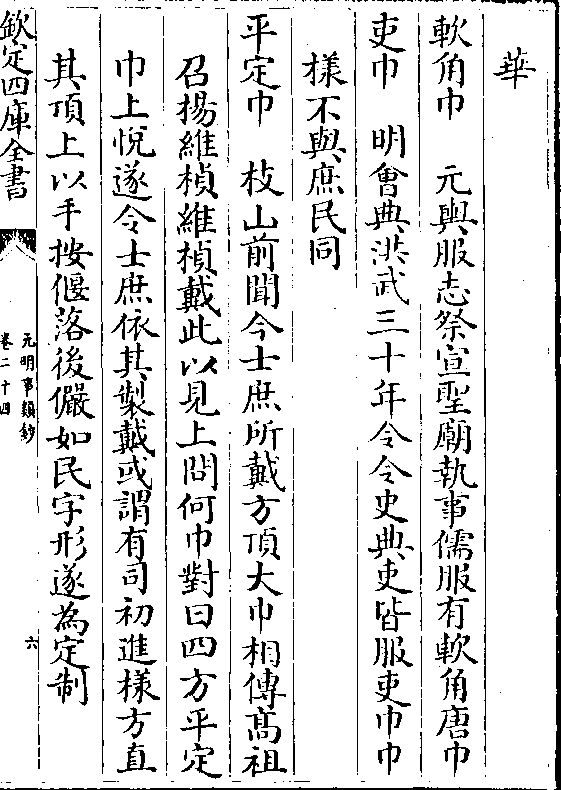 華
軟角巾　元輿服志祭宣聖廟執事儒服有軟角唐巾
吏巾　明會典洪武三十年令令史典吏皆服吏巾巾
樣不與庶民同
平定巾　枝山前聞今士庶所戴方頂大巾相傳髙祖
召揚維楨維楨戴此以見上問何巾對曰四方平定
巾上悅遂令士庶依其製戴或謂有司初進樣方直
其頂上以手按偃落後儼如民字形遂為定制
欽定四庫全書
元明事類鈔
卷二十四
六